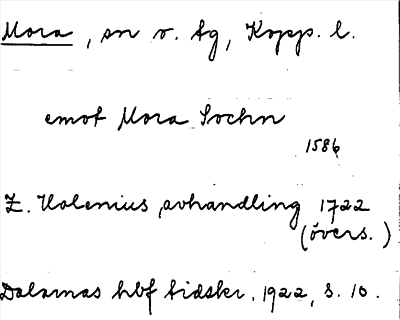 Mora, sn o. tg, Kopps. l.
emot Mora Sochn
1586
Z. Holenius avhandling 1722
(övers.)
Dalarnas hbf tidskr. 1922, s. 10.